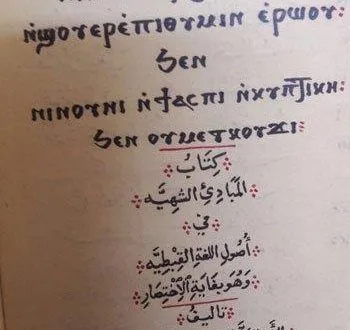 ⲛ̀ϣⲟⲩⲉⲣⲉ̀ⲡⲓⲑⲩⲙⲓⲛ ⲉ̀ⲣⲱⲟⲩ:
ϧⲉⲛ
ⲛⲓⲛⲟⲩⲛⲓ ⲛ̀ϯⲁⲥⲡⲓ ⲛ̀ⲕⲩⲡⲧⲓⲕⲏ:
ϧⲉⲛ ⲟⲩⲙⲉⲧⲕⲟⲩϫⲓ:
كِتَابُ
المَبَادِئِ الشَهِيَّه
في
أُصُولِ اللغَةِ القِبْطِيَّه
وَهُوَ بِغَايَةِ الِاخْتِصَارِ
تَالِيفُ